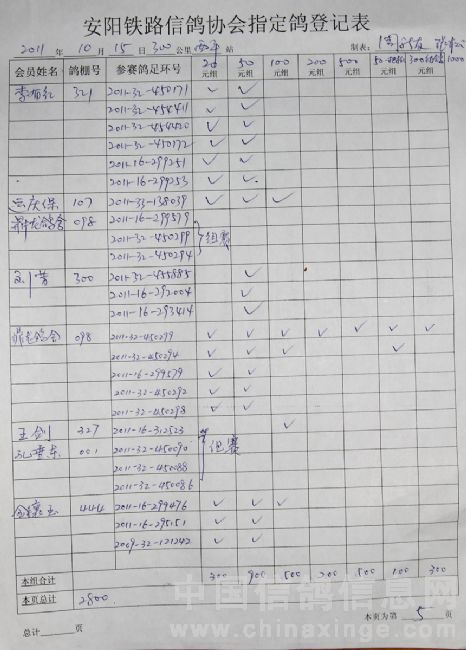 安阳铁路信鸽协会指定鸽登记表
2011 年 10 月 15 日 300 公里 站 制表：
会员姓名 鸽棚号 参赛鸽足环号 20元组 50元组 100元组 200元组 500元组 1000
321 2011-32-450171 ✓ ✓
2011-32-454411 ✓ ✓
2011-32-454420 ✓ ✓
2011-32-450172 ✓ ✓
2011-16-299251 ✓ ✓
2011-16-299253 ✓ ✓
107 2011-33-138039 ✓ ✓ ✓
鼎龙鸽舍 098 2011-16-299579
2011-32-450299 组赛
2011-32-450294
300 2011-32-455885 ✓
2011-16-292004 ✓
2011-16-293414 ✓
鼎龙鸽舍 098 2011-32-450299 ✓ ✓ ✓ ✓ ✓ ✓ ✓
2011-32-450294 ✓ ✓ ✓ ✓
2011-16-299579 ✓ ✓
2011-32-450292 ✓ ✓
2011-32-450298 ✓ ✓
王剑 327 2011-16-312523 ✓
001 2011-32-450090 组赛
2011-32-450088
2011-32-450086
444 2011-16-299476 ✓ ✓ ✓
2011-16-295151 ✓ ✓
2009-32-121242 ✓ ✓
本组合计 300 900 500 200 500 100 300
本页总计 2800.
总计 页 本页为第 5 页
中国信鸽信息网
www.chinaxinge.com